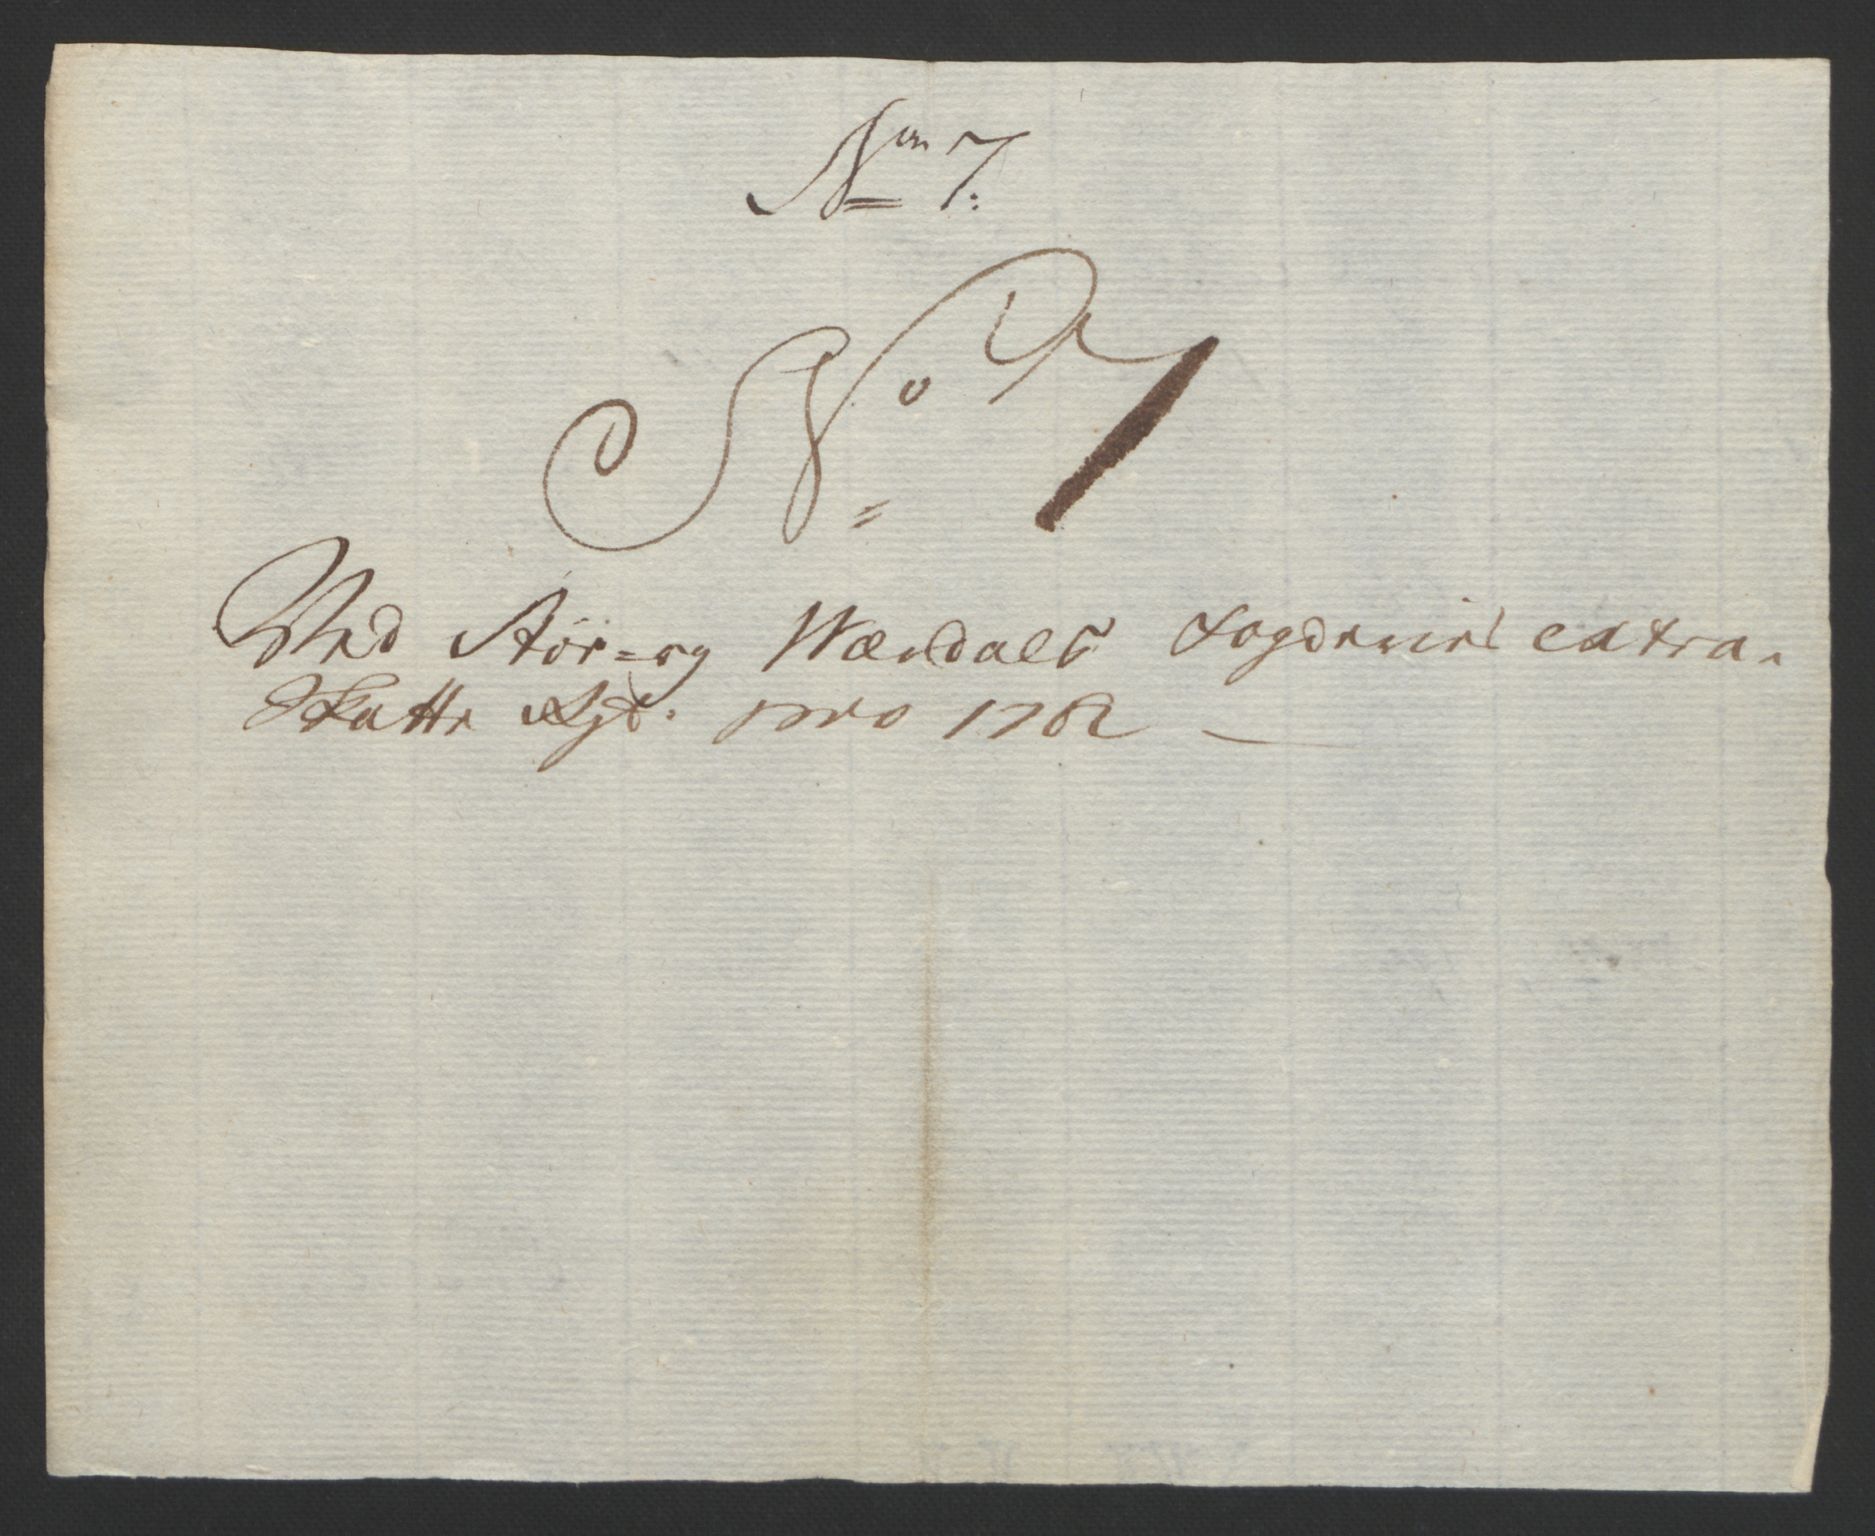 No 7:
No 7
Ved Stör- og Værdals Fogderies extra-
Skatte Rgsk: pro 1762